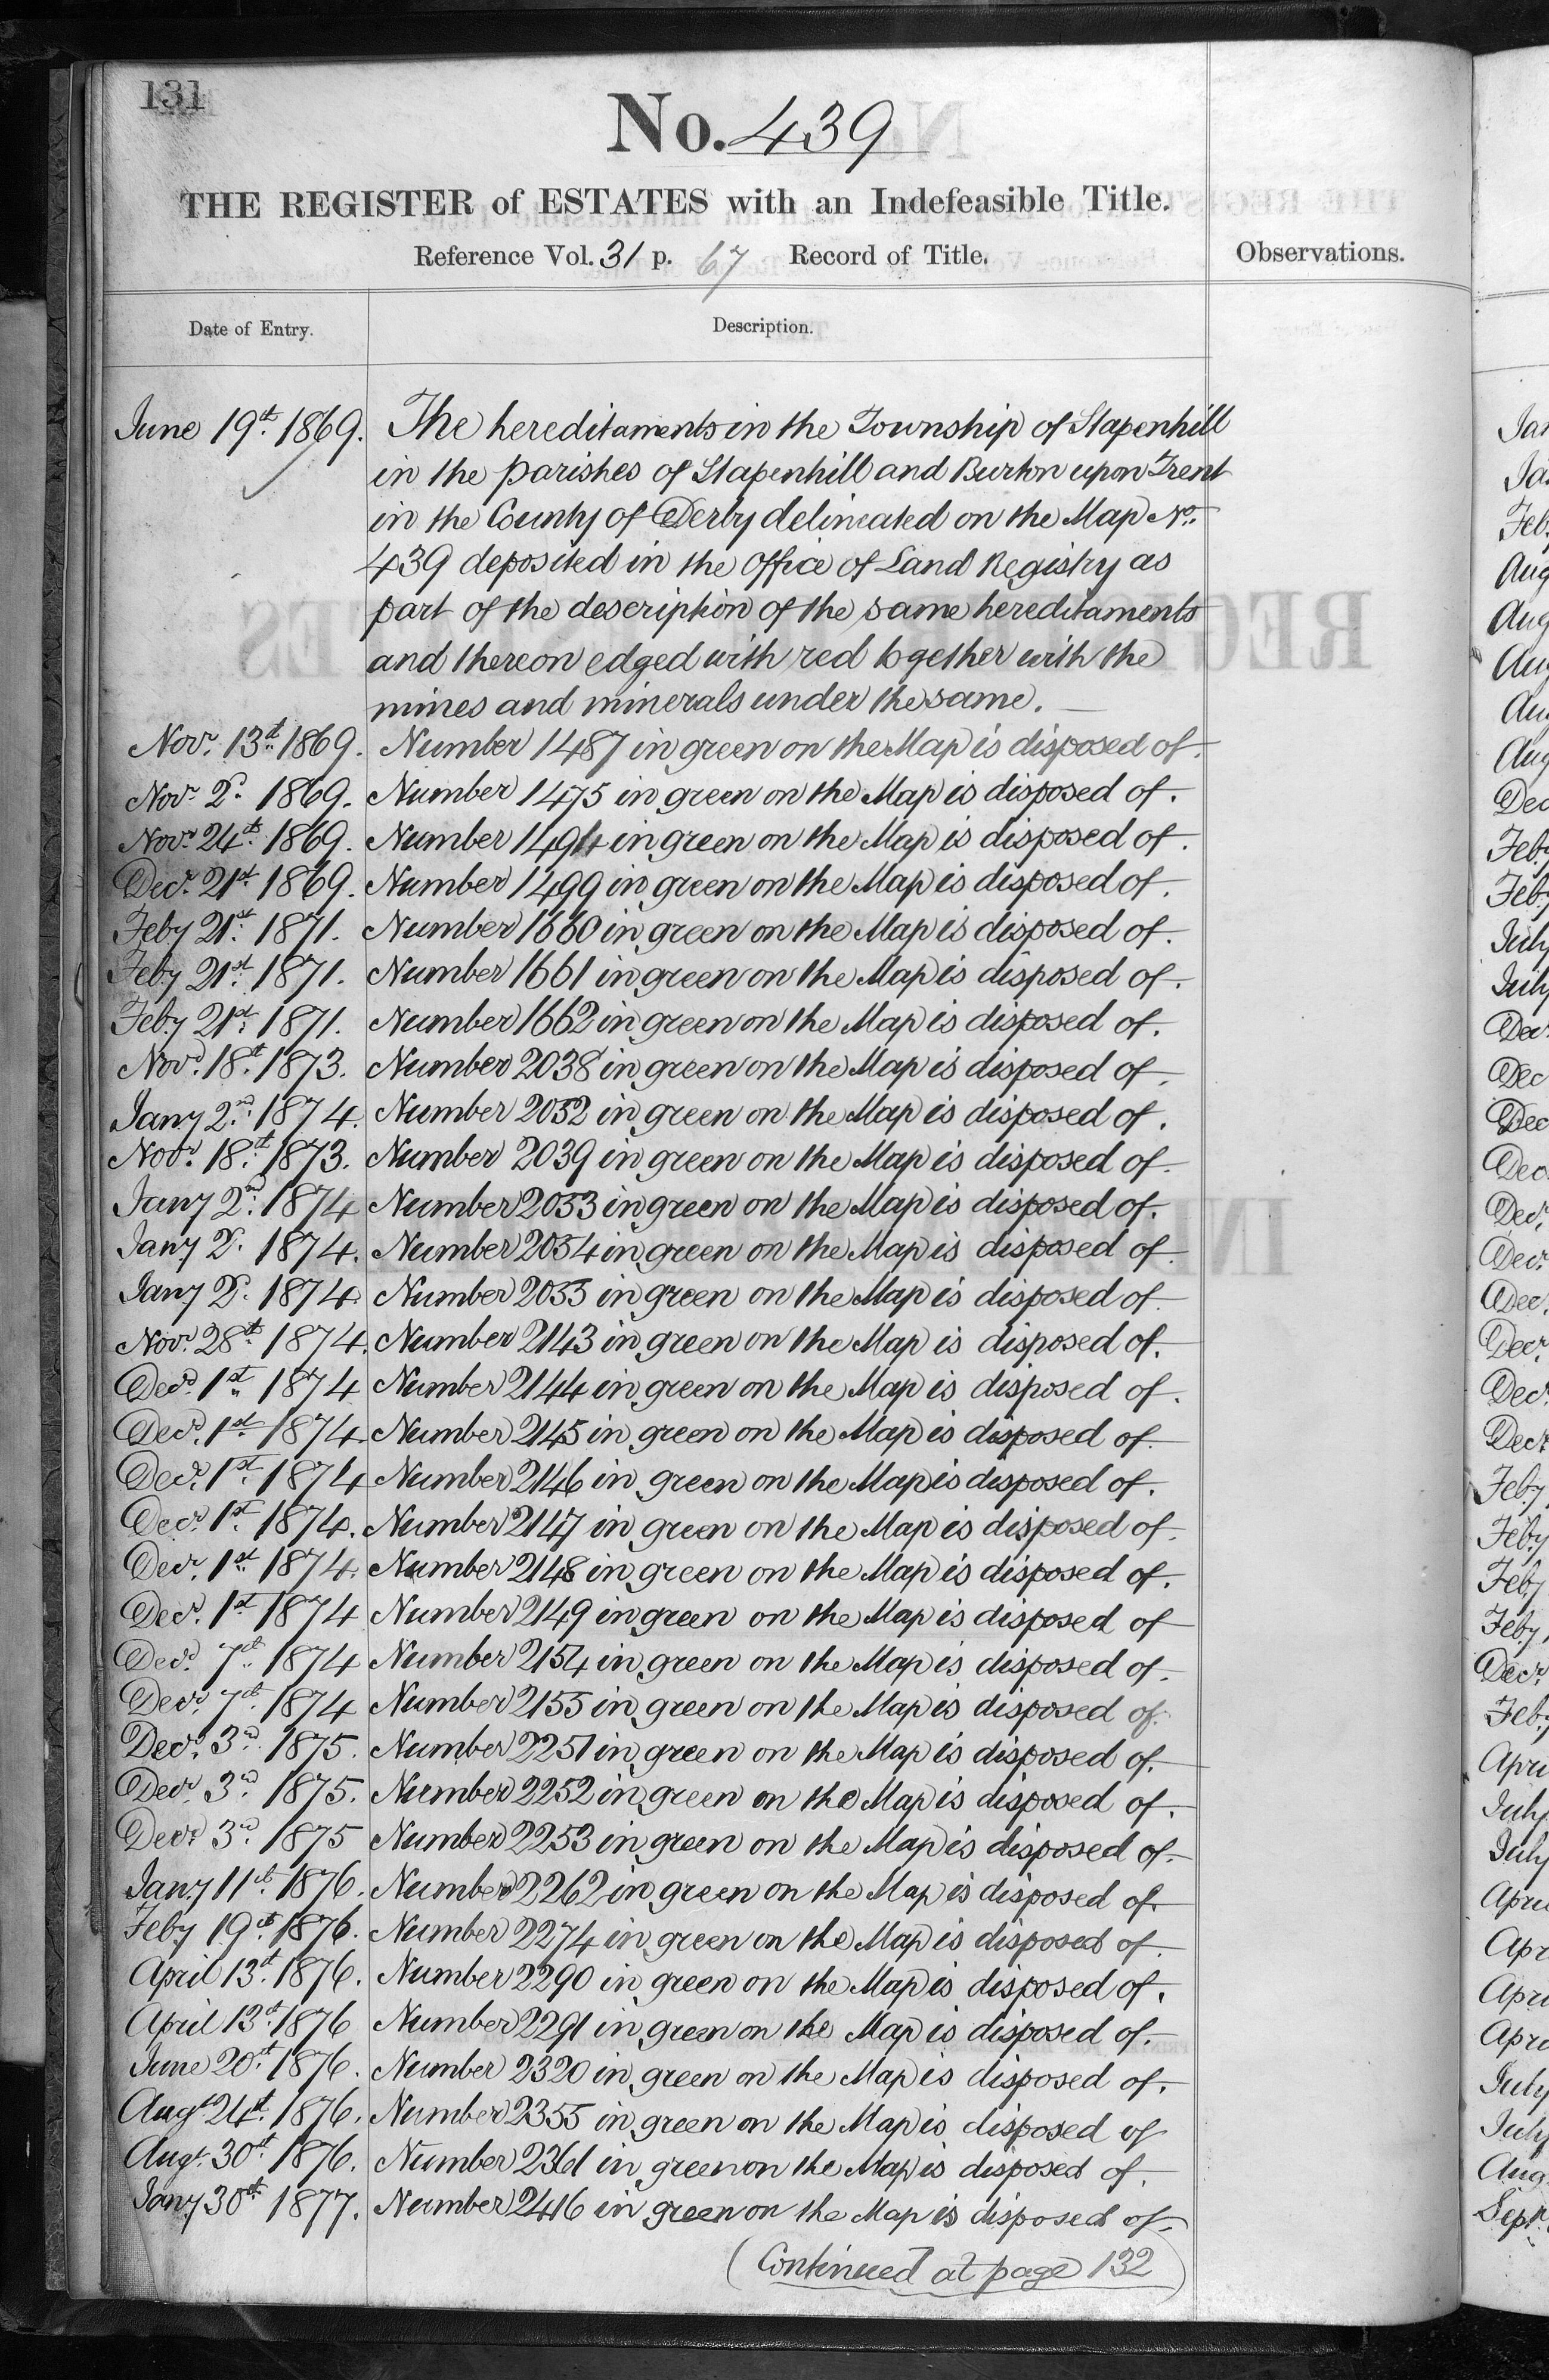 131
No. 439
THE REGISTER of ESTATES with an Indefeasible Title.
Reference Vol. 31 p. 67 Record of Title.
Observations.
Date of Entry. Description.
June 19th. 1869. The hereditaments in the Township of Stapenhill
in the parishes of Stapenhill and Burton upon Trent
in the County of Derby delineated on the Map No.
439 deposited in the office of Land Registry as
part of the description of the same hereditaments
and thereon edged with red together with the
mines and minerals under the same.
Novr. 13th. 1869. Number 1487 in green on the Map is disposed of.
Novr. 2d. 1869. Number 1475 in green on the Map is disposed of.
Novr. 24th. 1869. Number 1494 in green on the Map is disposed of.
Decr. 21st. 1869. Number 1499 in green on the Map is disposed of.
Feby 21st. 1871. Number 1660 in green on the Map is disposed of.
Feby 21st. 1871. Number 1661 in green on the Map is disposed of.
Feby 21st. 1871. Number 1662 in green on the Map is disposed of.
Novr. 18th. 1873. Number 2038 in green on the Map is disposed of.
Jany 2nd. 1874. Number 2052 in green on the Map is disposed of.
Novr. 18th. 1873. Number 2039 in green on the Map is disposed of.
Jany 2nd. 1874 Number 2053 in green on the Map is disposed of.
Jany 2d. 1874. Number 2054 in green on the Map is disposed of.
Jany 2d. 1874. Number 2055 in green on the Map is disposed of.
Novr. 28th. 1874. Number 2143 in green on the Map is disposed of.
Decr. 1st. 1874 Number 2144 in green on the Map is disposed of.
Decr. 1st. 1874. Number 2145 in green on the Map is disposed of.
Decr. 1st. 1874 Number 2146 in green on the Map is disposed of.
Decr. 1st. 1874. Number 2147 in green on the Map is disposed of.
Decr. 1st. 1874. Number 2148 in green on the Map is disposed of.
Decr. 1st. 1874 Number 2149 in green on the Map is disposed of
Decr. 7th. 1874 Number 2154 in green on the Map is disposed of.
Decr. 7th. 1874 Number 2155 in green on the Map is disposed of.
Decr. 3rd. 1875. Number 2251 in green on the Map is disposed of.
Decr. 3rd. 1875. Number 2252 in green on the Map is disposed of.
Decr. 3rd. 1875 Number 2253 in green on the Map is disposed of.
Jany 11th. 1876. Number 2262 in green on the Map is disposed of.
Feby 19th. 1876. Number 2274 in green on the Map is disposed of.
April 13th. 1876. Number 2290 in green on the Map is disposed of.
April 13th. 1876 Number 2291 in green on the Map is disposed of.
June 20th. 1876. Number 2320 in green on the Map is disposed of.
Augt 24th. 1876. Number 2355 in green on the Map is disposed of
Augt. 30th. 1876. Number 2361 in green on the Map is disposed of.
Jany 30th. 1877. Number 2416 in green on the Map is disposed of.
(Continued at page 132)